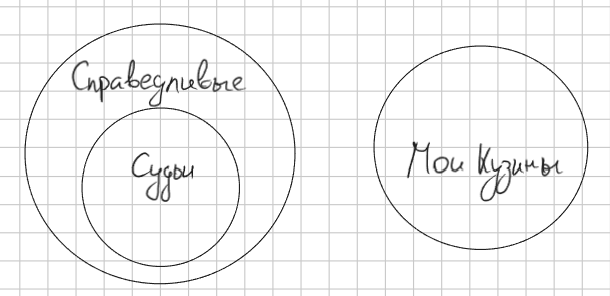 Справедливые
Судьи
Мои Кузины